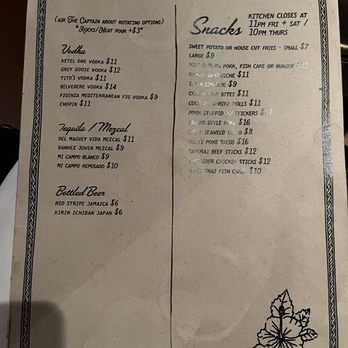 (ask The Captain about rotating options)
"Rocks/Neat pour +$3"
Vodka
Ketel One Vodka $11
Grey Goose Vodka $12
Tito's Vodka $11
Belvedere Vodka $14
Figenza Mediterranean Fig Vodka $9
Chopin $11
Tequila / Mezcal
Del Maguey Vida Mezcal $11
Banhez Joven Mezcal $9
Mi Campo Blanco $9
Mi Campo Reposado $10
Bottled Beer
Red Stripe Jamaica $6
Kirin Ichiban Japan $6
Snacks
Kitchen closes at
11pm Fri + Sat /
10pm Thurs
Sweet Potato or House Cut Fries - Small $7
Large $9
Pork, Fish Cake or Burger
$9
$11
Rolls $11
Pork Stuffed Pot Stickers $11
Style Pork $16
Seaweed Salad $8
Poke Tacos $16
Beef Sticks $12
Chicken Sticks $12
Thai Fish Cakes $10